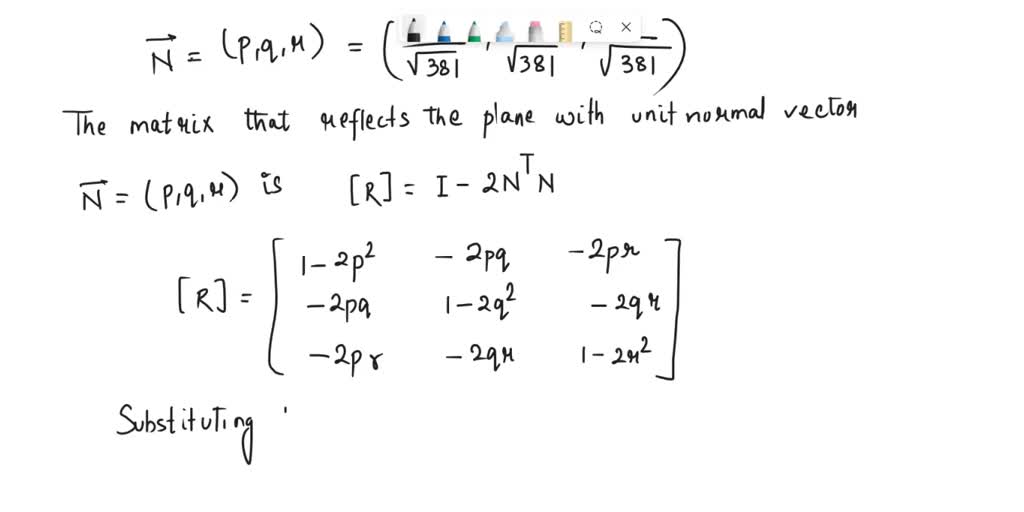 N⃗ = (p,q,r) = ( /√381 , /√381 , /√381 )
The matrix that reflects the plane with unit normal vector
N⃗ = (p,q,r) is [R] = I - 2NᵀN
1-2p² -2pq -2pr
[R] = -2pq 1-2q² -2qr
-2pr -2qr 1-2r²
Substituting